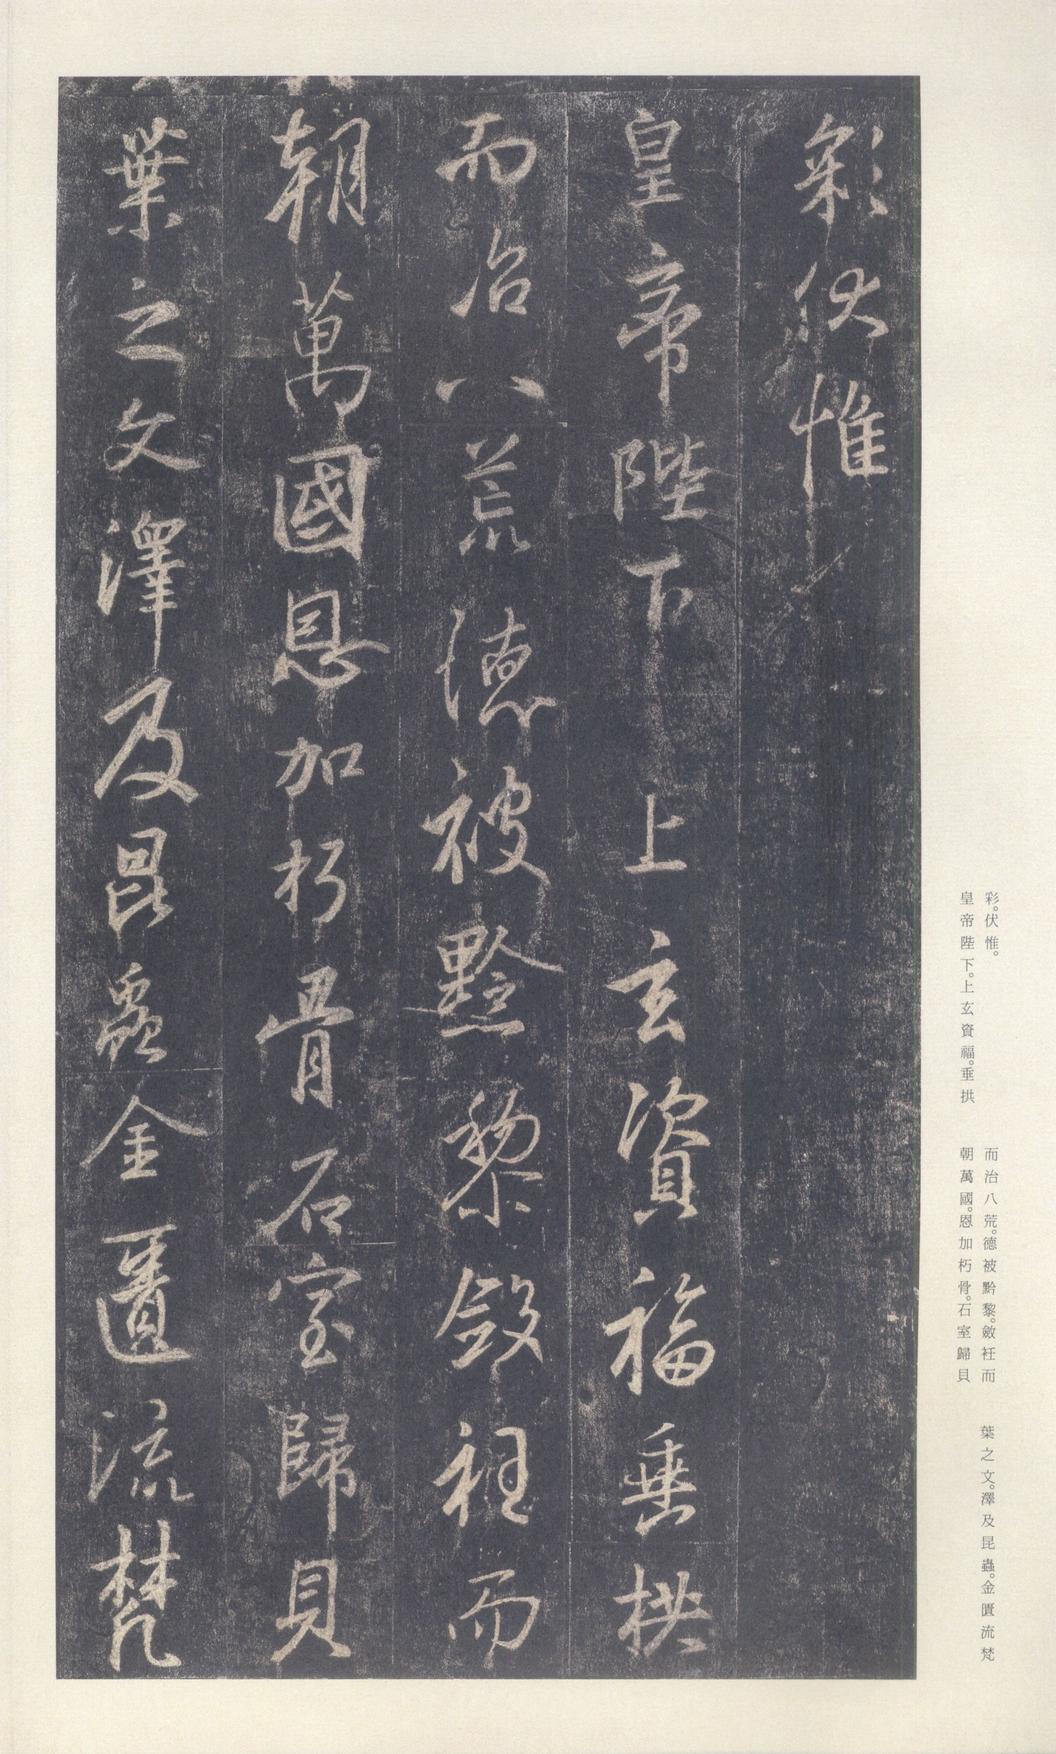 彩伏惟
皇帝陛下上玄資福垂拱
而治八荒德被黔黎斂衽而
朝萬國恩加朽骨石室歸貝
葉之文澤及昆蟲金匱流梵
彩。伏惟。
皇帝陛下。上玄資福。垂拱
而治八荒。德被黔黎。斂衽而
朝萬國。恩加朽骨。石室歸貝
葉之文。澤及昆蟲。金匱流梵